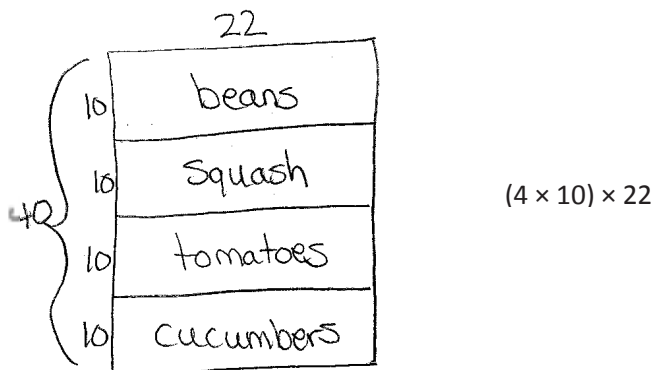 22
10 beans
10 squash
40
10 tomatoes
10 cucumbers
(4 × 10) × 22